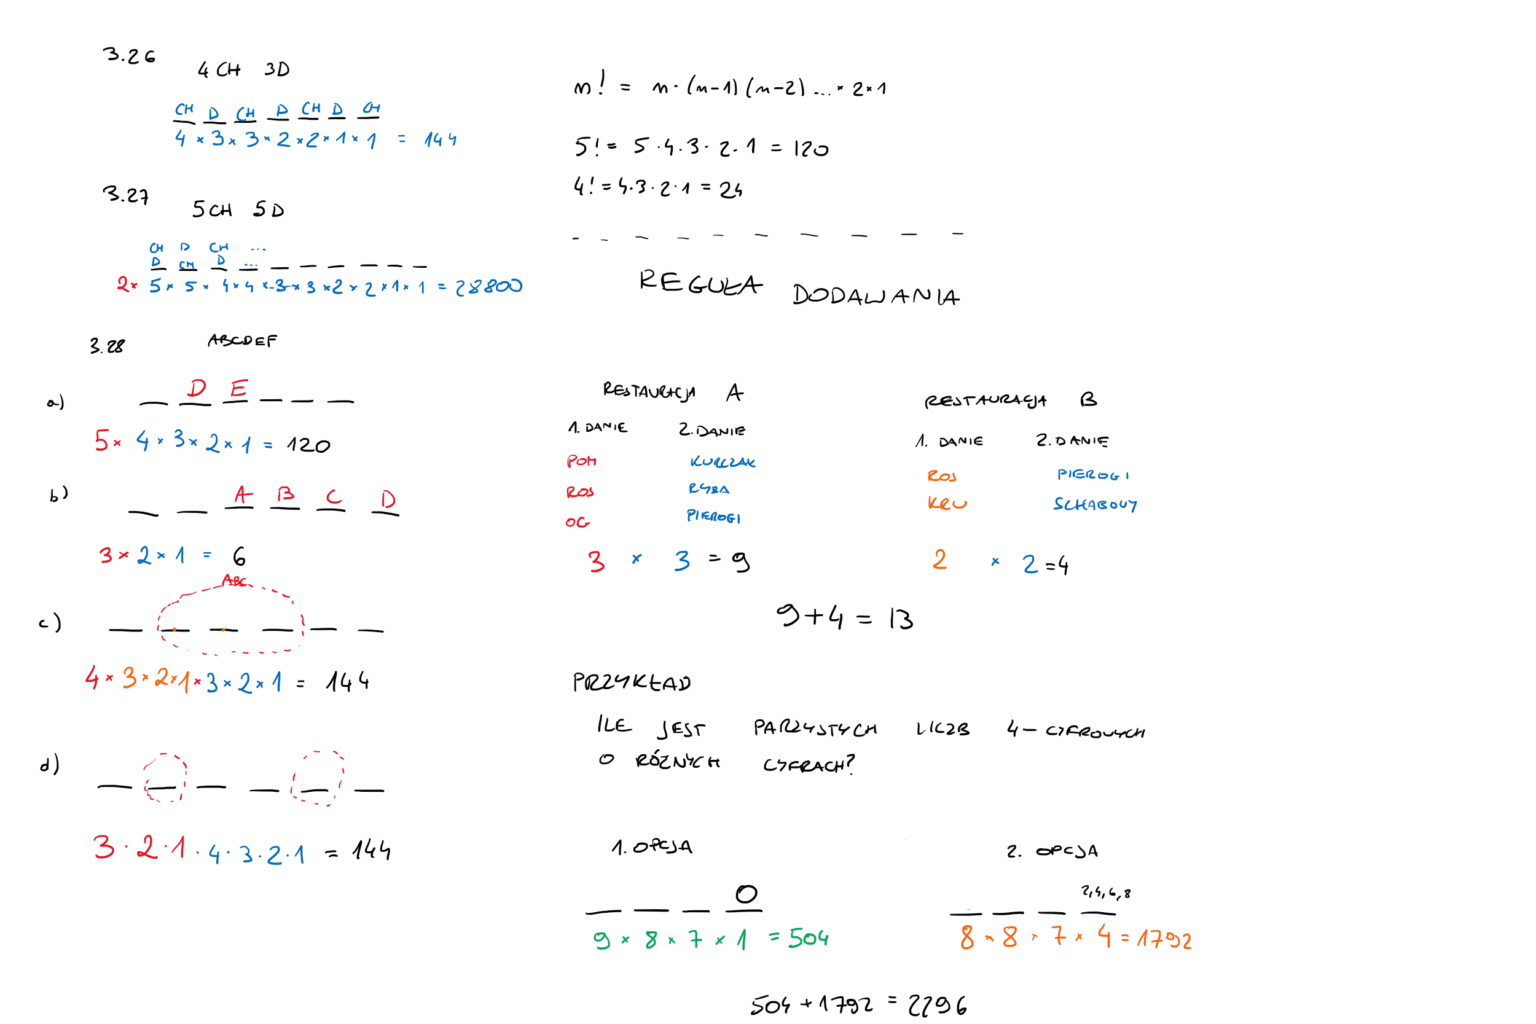 3.26
4 CH 3D
CH D CH D CH D CH
4 × 3 × 3 × 2 × 2 × 1 × 1 = 144
3.27
5 CH 5 D
CH D CH ...
D CH D ...
2 × 5 × 5 × 4 × 4 × 3 × 3 × 2 × 2 × 1 × 1 = 28800
3.28 ABCDEF
a) _ D E _ _ _
5 × 4 × 3 × 2 × 1 = 120
b) _ _ A B C D
3 × 2 × 1 = 6
ABC
c) _ _ _ _ _ _
4 × 3 × 2 × 1 × 3 × 2 × 1 = 144
d) _ _ _ _ _ _
3 · 2 · 1 · 4 · 3 · 2 · 1 = 144
n! = n · (n-1) (n-2) ... · 2 · 1
5! = 5 · 4 · 3 · 2 · 1 = 120
4! = 4 · 3 · 2 · 1 = 24
REGUŁA DODAWANIA
RESTAURACJA A
1. DANIE 2. DANIE
POM KURCZAK
ROS RYBA
OG PIEROGI
3 × 3 = 9
RESTAURACJA B
1. DANIE 2. DANIE
ROS PIEROGI
KRU SCHABOWY
2 × 2 = 4
9 + 4 = 13
PRZYKŁAD
ILE JEST PARZYSTYCH LICZB 4 - CYFROWYCH
O RÓŻNYCH CYFRACH?
1. OPCJA
_ _ _ 0
9 × 8 × 7 × 1 = 504
2. OPCJA
2,4,6,8
8 × 8 × 7 × 4 = 1792
504 + 1792 = 2296